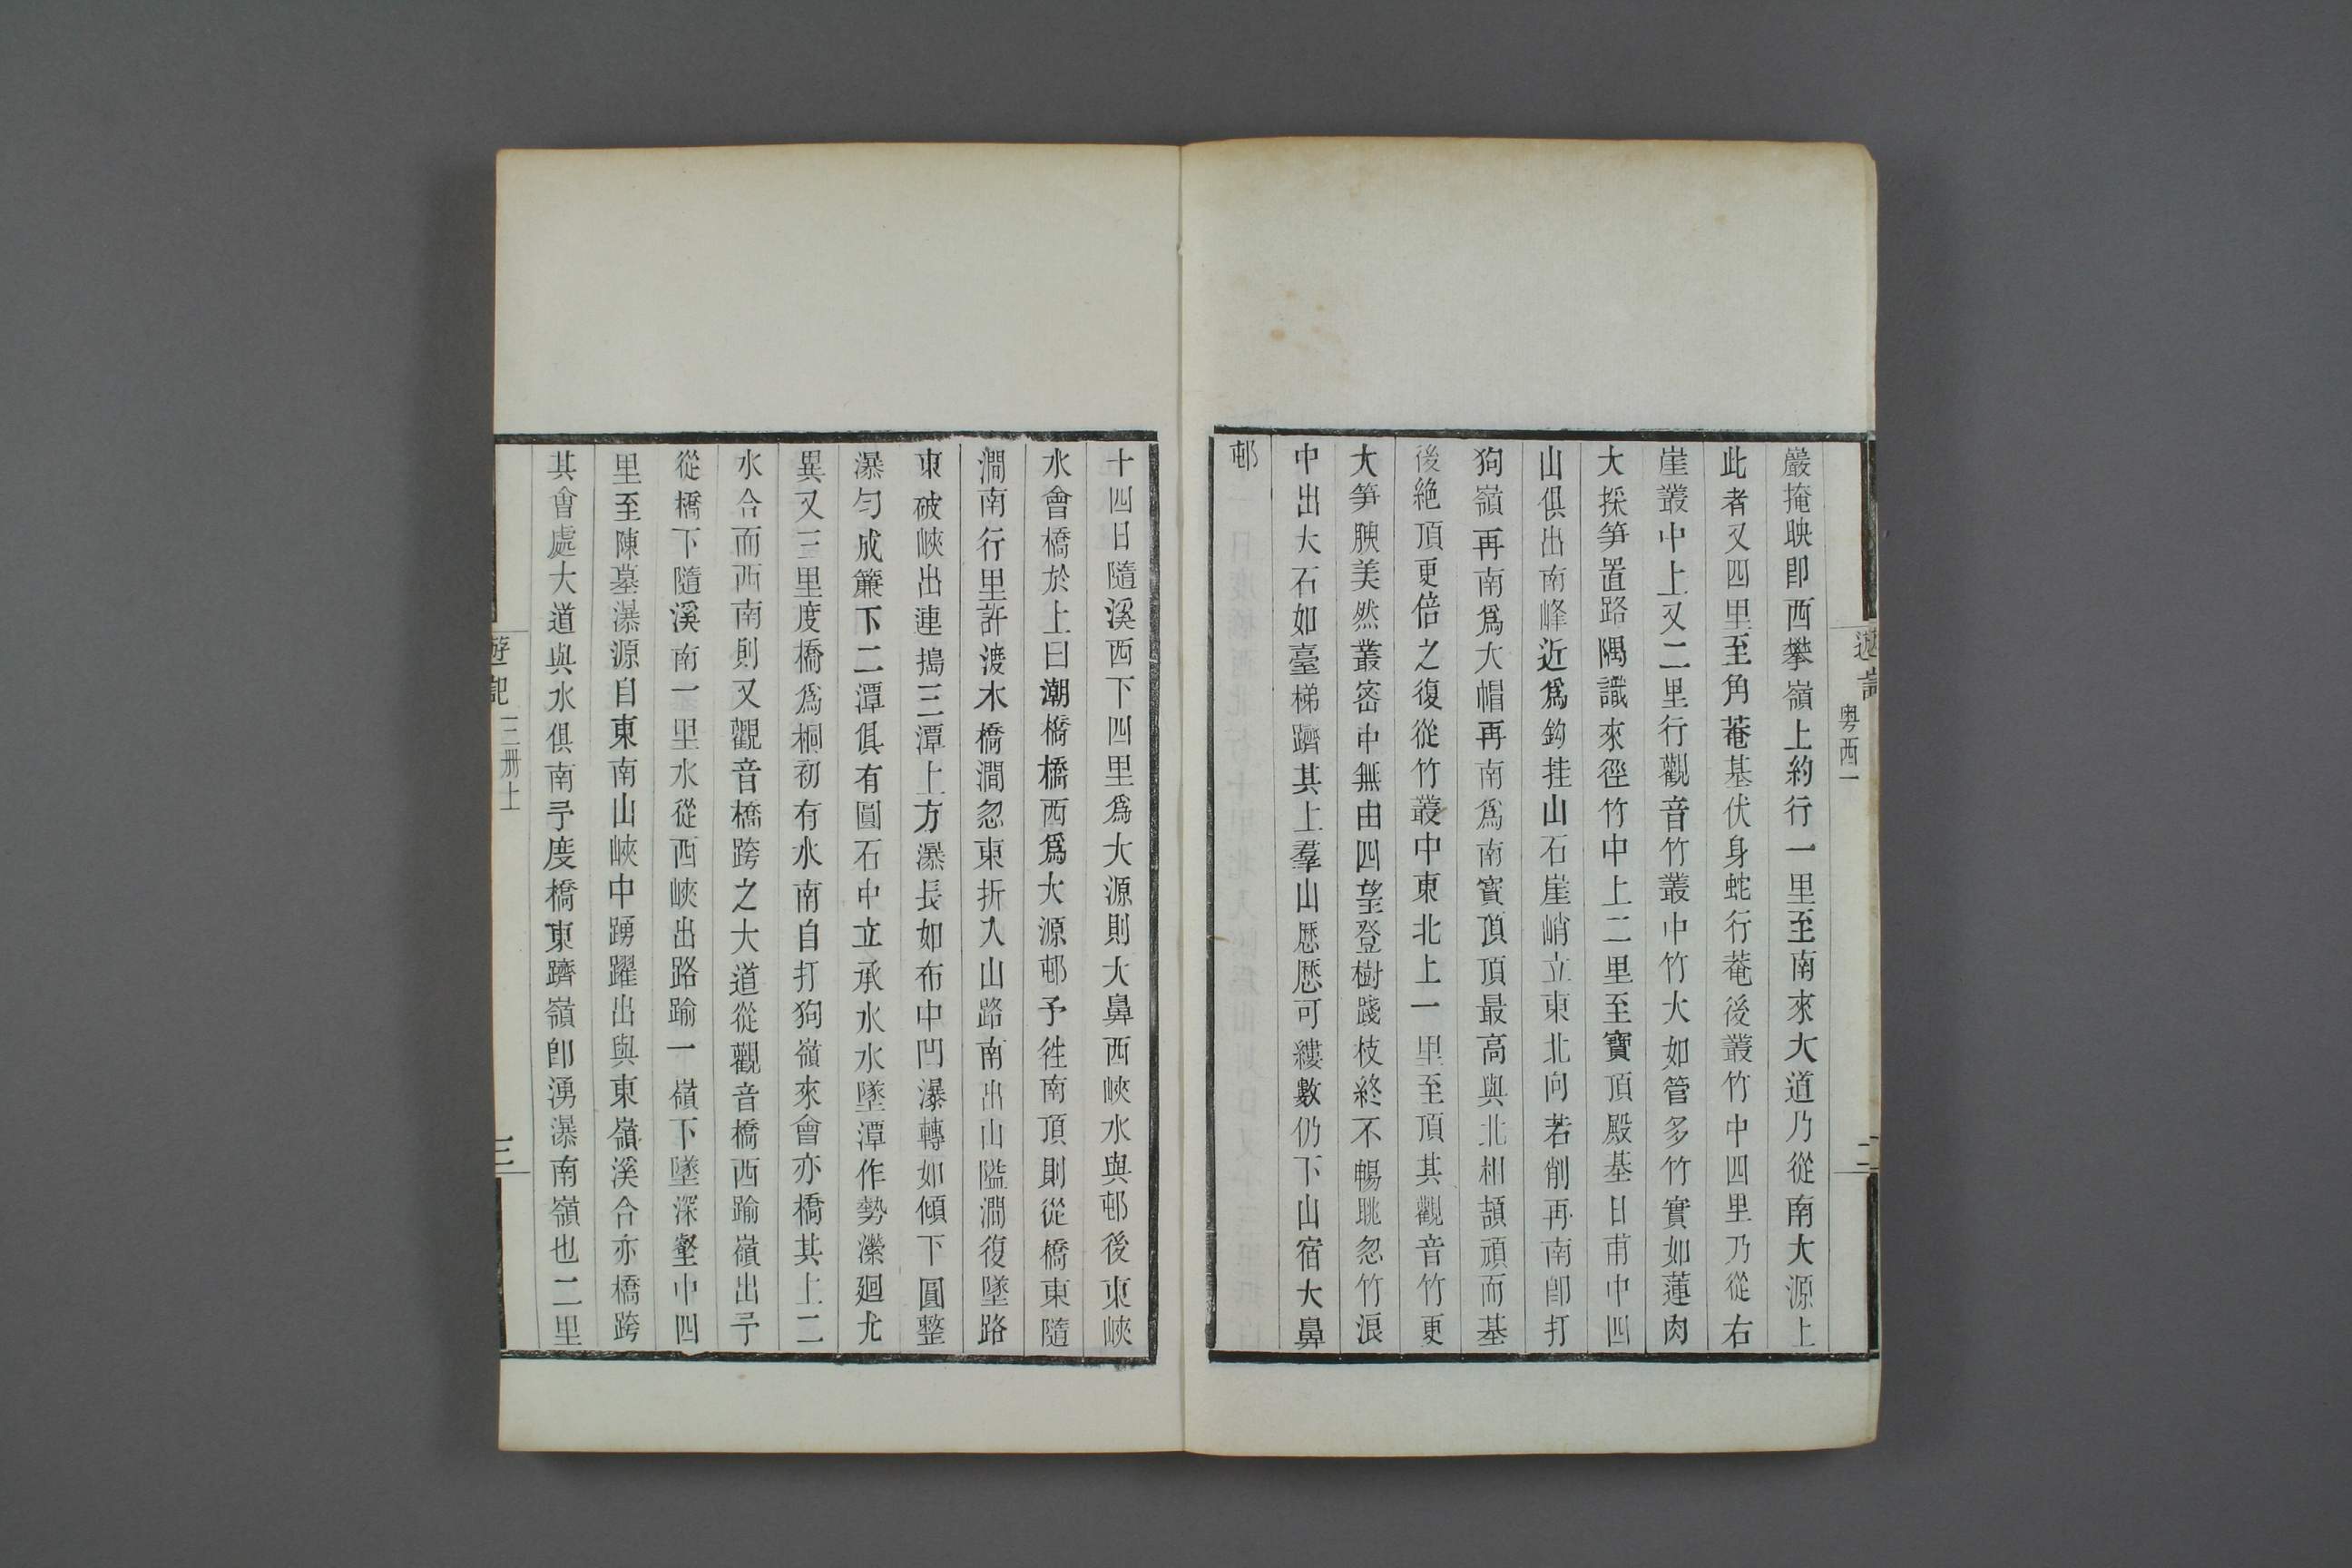 遊記
粤西一
二
嚴掩映卽西攀嶺上約行一里至南來大道乃從南大源上
此者又四里至角菴基伏身蛇行菴後叢竹中四里乃從右
崖叢中上又二里行觀音竹叢中竹大如管多竹實如蓮肉
大採笋置路隅識來徑竹中上二里至寶頂殿基日甫中四
山俱出南峰近爲鈎挂山石崖峭立東北向若削再南卽打
狗嶺再南爲大帽再南爲南寳頂頂最高與北相頡頏而基
後絶頂更倍之復從竹叢中東北上一里至頂其觀音竹更
大笋腴美然叢密中無由四望登樹踐枝終不暢眺忽竹浪
中出大石如臺梯躋其上羣山歷歷可縷數仍下山宿大鼻
邨
十四日隨溪西下四里爲大源則大鼻西峽水與邨後東峽
水會橋於上曰潮橋橋西爲大源邨予徃南頂則從橋東隨
澗南行里許渡木橋澗忽東折入山路南出山隘澗復墜路
東破峽出連搗三潭上方瀑長如布中凹瀑轉如傾下圓整
瀑勻成簾下二潭俱有圓石中立承水水墜潭作勢瀠廻尤
異又三里度橋爲桐初有水南自打狗嶺來會亦橋其上二
水合而西南則又觀音橋跨之大道從觀音橋西踰嶺出予
從橋下隨溪南一里水從西峽出路踰一嶺下墜深壑中四
里至陳墓瀑源自東南山峽中踴躍出與東嶺溪合亦橋跨
其會處大道與水俱南予度橋東躋嶺卽湧瀑南嶺也二里
遊記
三册上
三